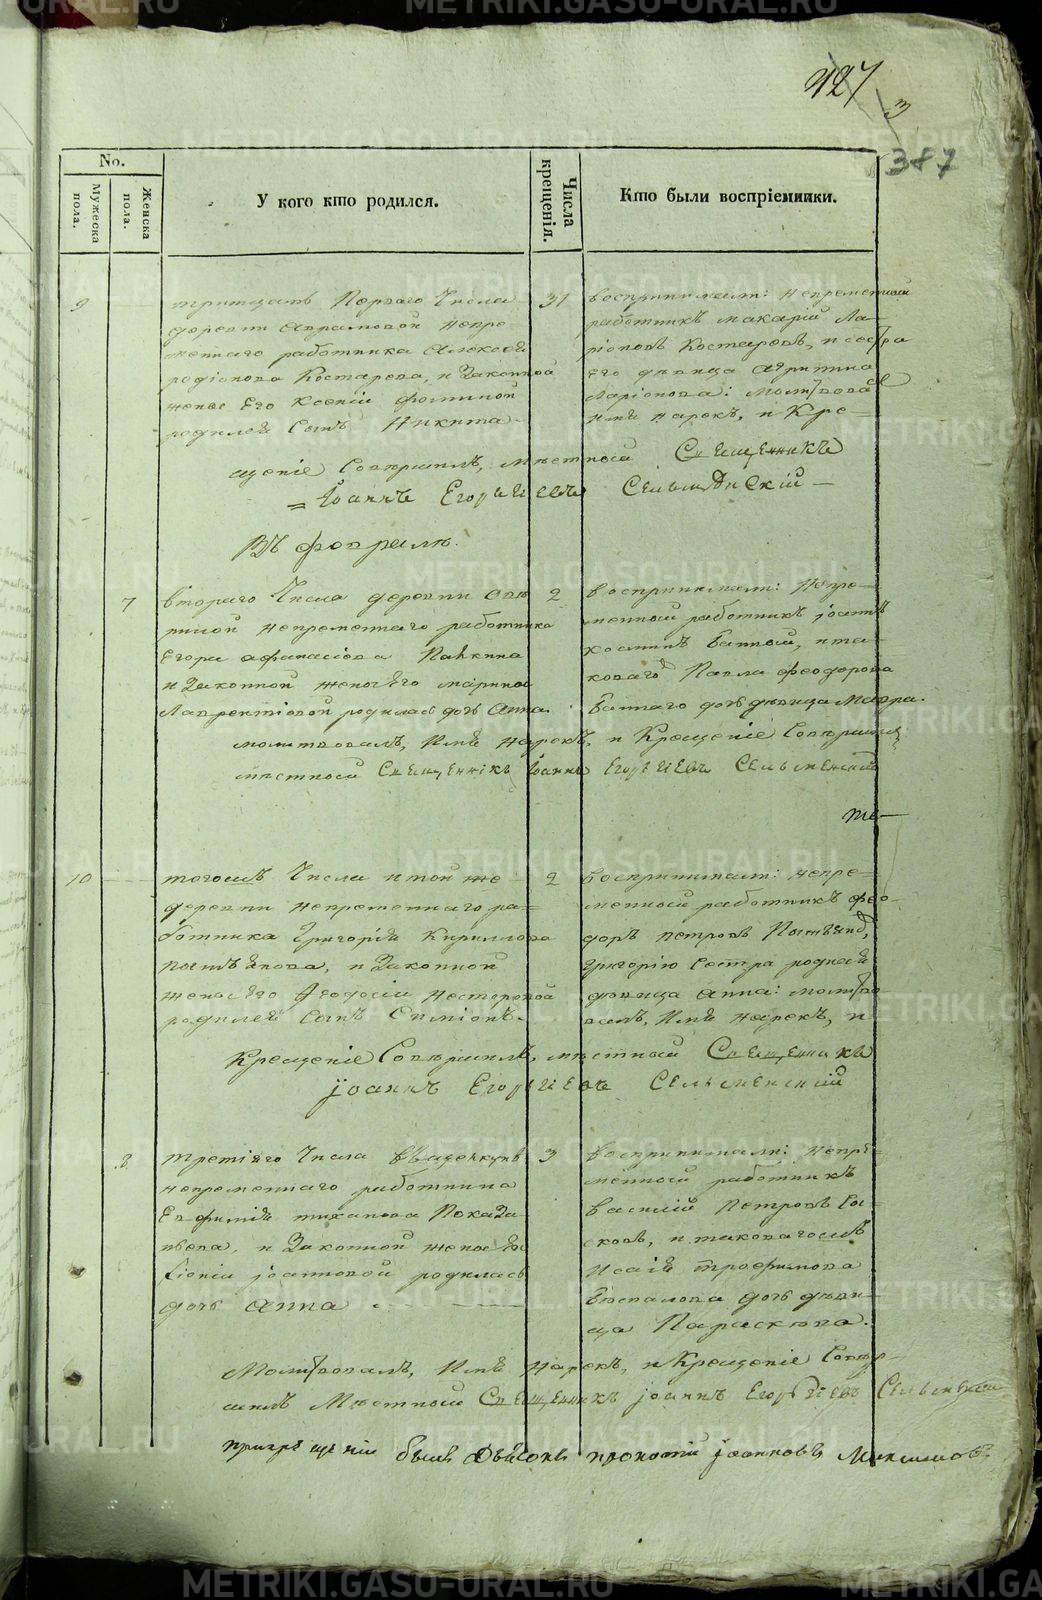 127
3
387
No.
Мужеска пола.
Женска пола.
У кого кто родился.
Числа крещенія.
Кто были воспріемники.
9
тритцать Перваго Числа
деревни Аврамовой непре
меннаго работника Алексея
родіонова Костарева, и Законной
жены Его Ксеніи фоминой
родился Сынъ Никита
31
Воспринимали: Непременный
работникъ макарій Ла-
ріоновъ Костаревъ, и сестра
Его девица
Ларіонова: молитвовалъ
имя нарекъ, и Кре-
щеніе Совершилъ, местный Священникъ
Іоаннъ Егорьевъ Сельменскій
Въ февралѣ.
7
втораго Числа деревни
непременнаго работника
Егора афанасіева
и Законной жены Его марины
Лаврентіевой родилась дочь Анна
2
Воспринимали: Непре-
менный работникъ іоаннъ
козминъ Банный, и та-
коваго Павла феодорова
Баннаго дочь девица Мавра.
молитвовалъ, Имя Нарекъ, и Крещеніе Совершилъ
местный Священникъ Іоаннъ Егорьевъ Сельменскій
10
тогожъ Числа и той же
деревни непременнаго ра-
ботника Григорія Кирилова
и Законной
жены Его Феодосіи Несторовой
родился Сынъ Симіонъ.
2
Воспринимали: непре-
менный работникъ фео-
доръ петровъ
Григорію Сестра родная
девица Анна: молитво
валъ, Имя нарекъ, и
Крещеніе Совершилъ, местный Священникъ
іоаннъ Егорьевъ Сельменскій
8
третіяго Числа
непременнаго работника
Евфимія тиханова
и Законной жены Его
іоанновой родилась
дочь Анна
3
Воспринимали: Непре-
менный работникъ
Василій Петровъ
и таковагожъ
Исаія трофимова
Беспалова дочь деви-
ца Параскева.
Молитвовалъ, Имя Нарекъ, и Крещеніе Совер-
шилъ Местный Священникъ іоаннъ Егорьевъ Сельменскій
при крещеніи былъ Дьяконъ прокопій іоанновъ
METRIKI.GASO-URAL.RU